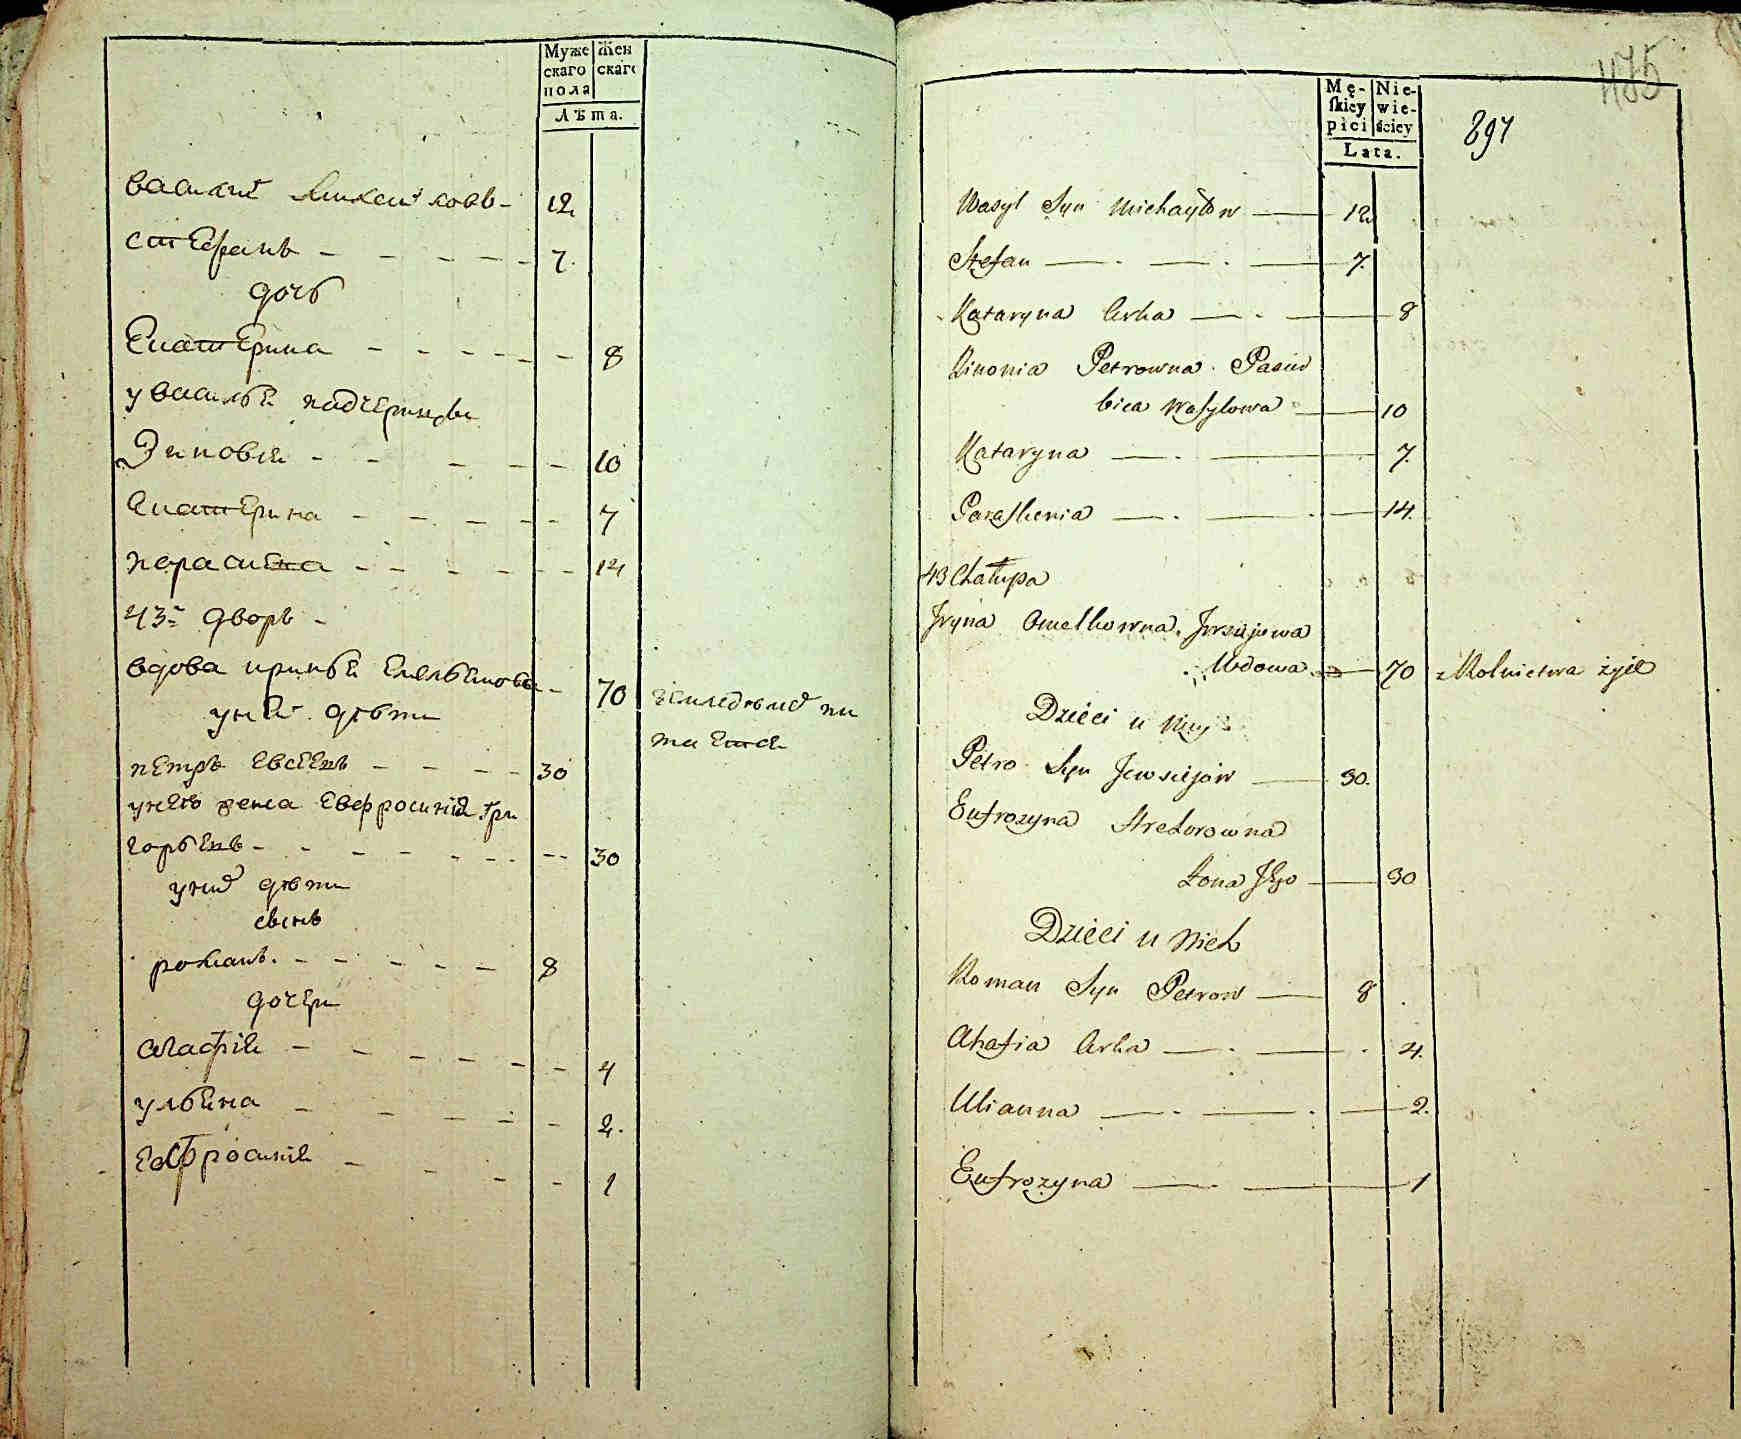 Муже
скаго
пола
Жен
скаго
Лѣта.
василий михайловъ 12
стефанъ 7
дочь
Екатерина 8
у василья падчерицы
Зиновия 10
Екатерина 7
парасина 14
43й дворъ
вдова иринья Емельянова 70 земледелием пи
тается
у ней дѣти
петръ Евсеевъ 30
у него жена Евфросиния Гри
горьева 30
у них дѣти
сынъ
романъ 8
дочери
агафия 4
ульяна 2.
Евфросиния 1
475
897
Mę-
skiey
płci
Nie-
wie-
ściey
Lata.
Wasyl Syn Michayłow 12
Stefan 7
Kataryna Crka 8
Zinonia Petrowna Pasier
bica Wasylowa 10
Kataryna 7
Paraskenia 14
43 Chałupa
Iryna Omelkowna Jewsiejowa
Wdowa 70 z Rolnictwa żyie
Dzieci u Niey
Petro Syn Jewsiejow 30.
Eufrozyna
Żona Jego 30
Dzieci u Nich
Roman Syn Petrow 8
Ahafia Crka 4.
Ulianna 2.
Eufrozyna 1